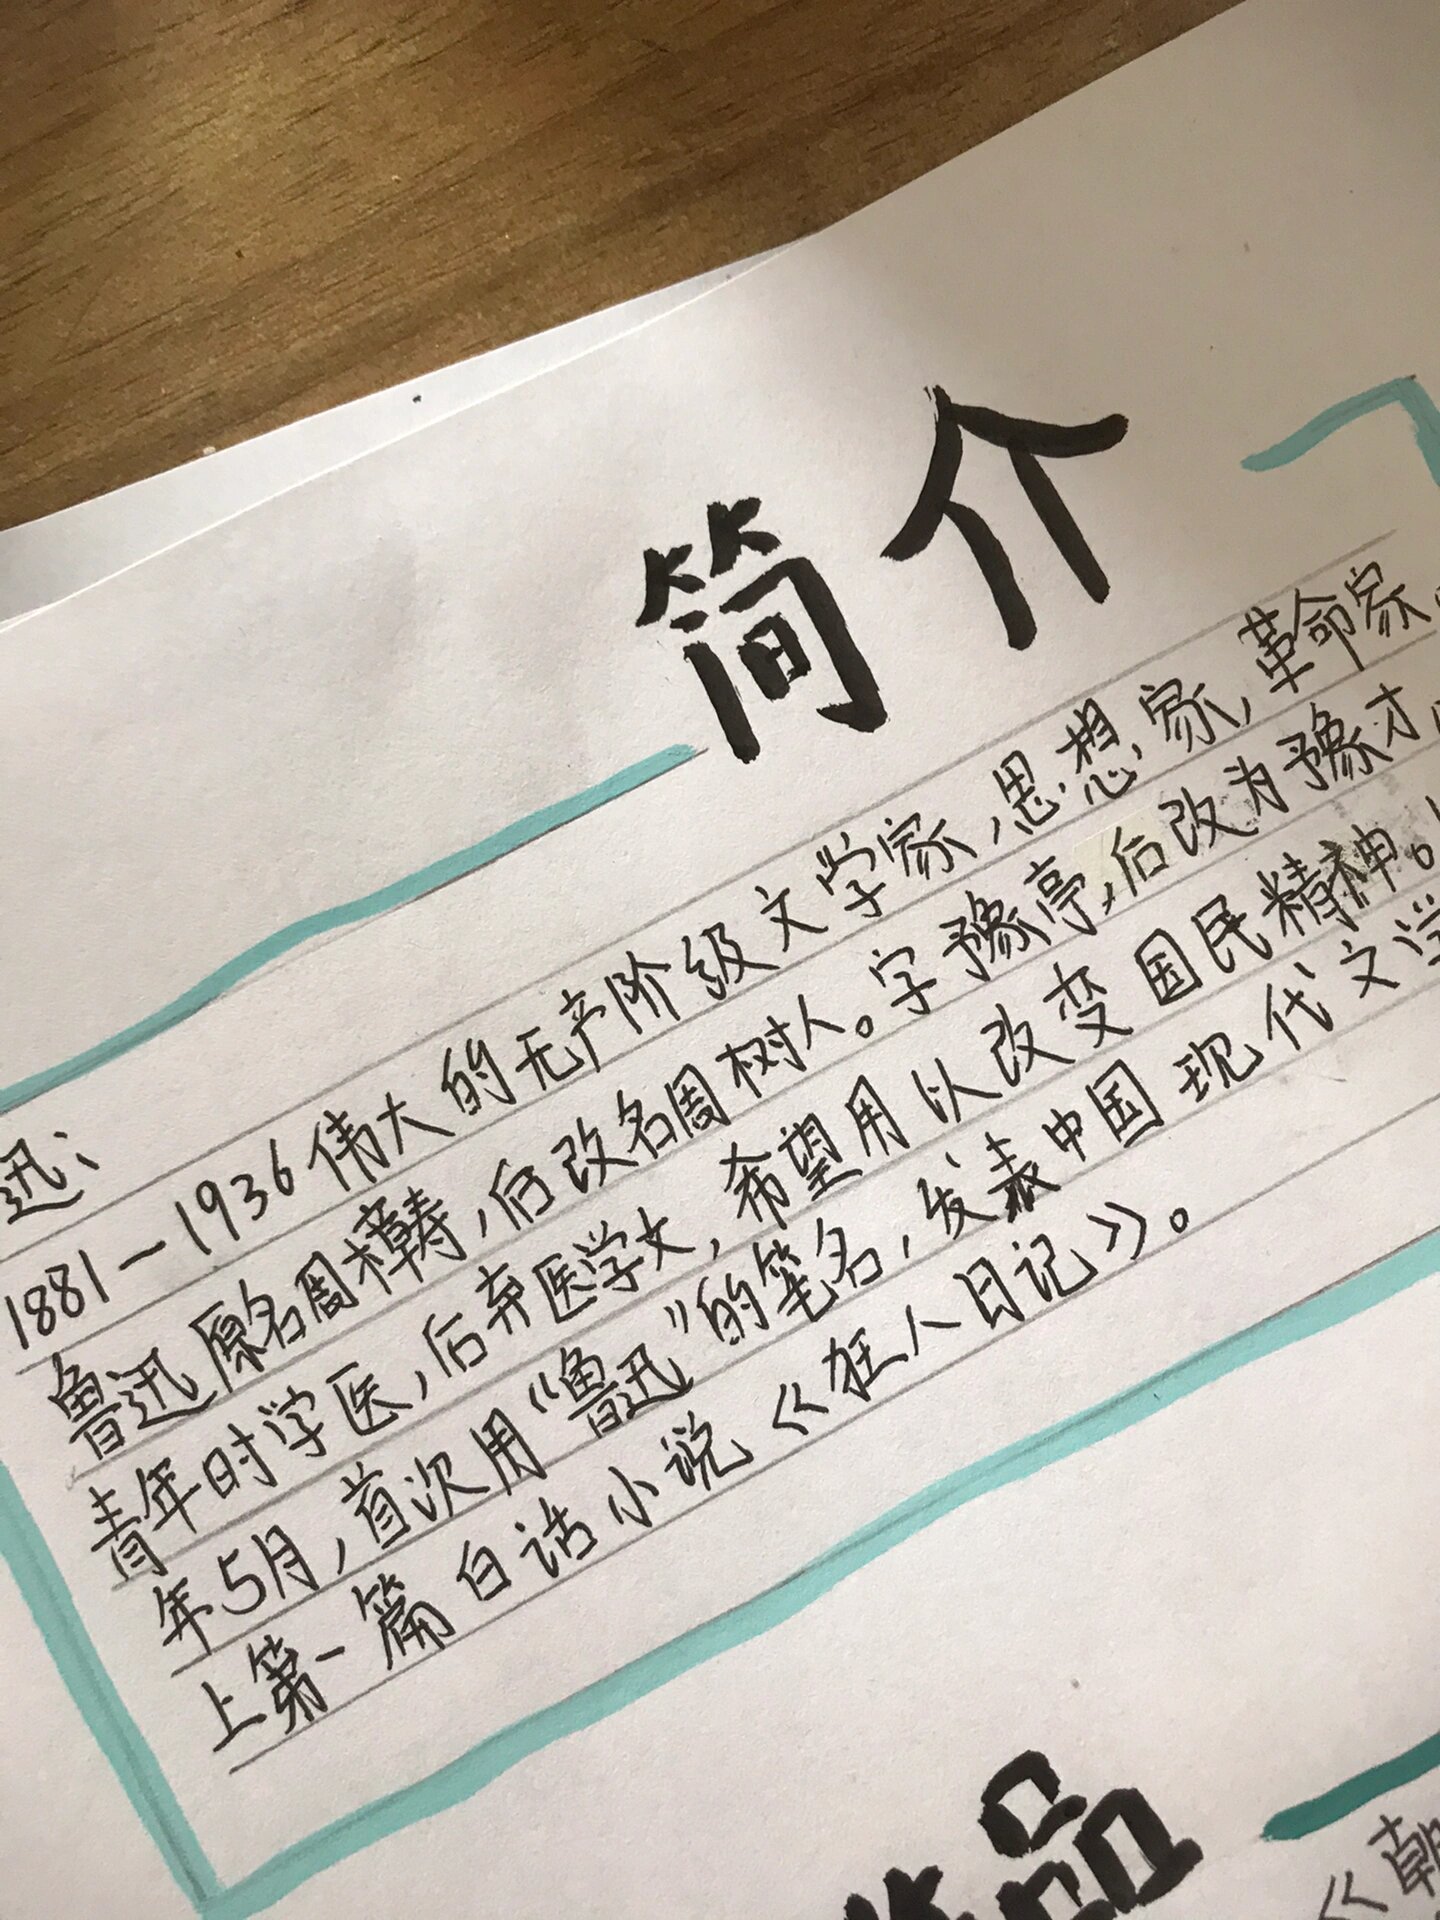 简介
迅:
1881-1936伟大的无产阶级文学家,思想家,革命家。
鲁迅原名周樟寿,后改名周树人。字豫亭,后改为豫才。
青年时学医,后弃医学文,希望用以改变国民精神。
年5月,首次用“鲁迅”的笔名,发表中国现代文学
上第一篇白话小说《狂人日记》。
品
《朝